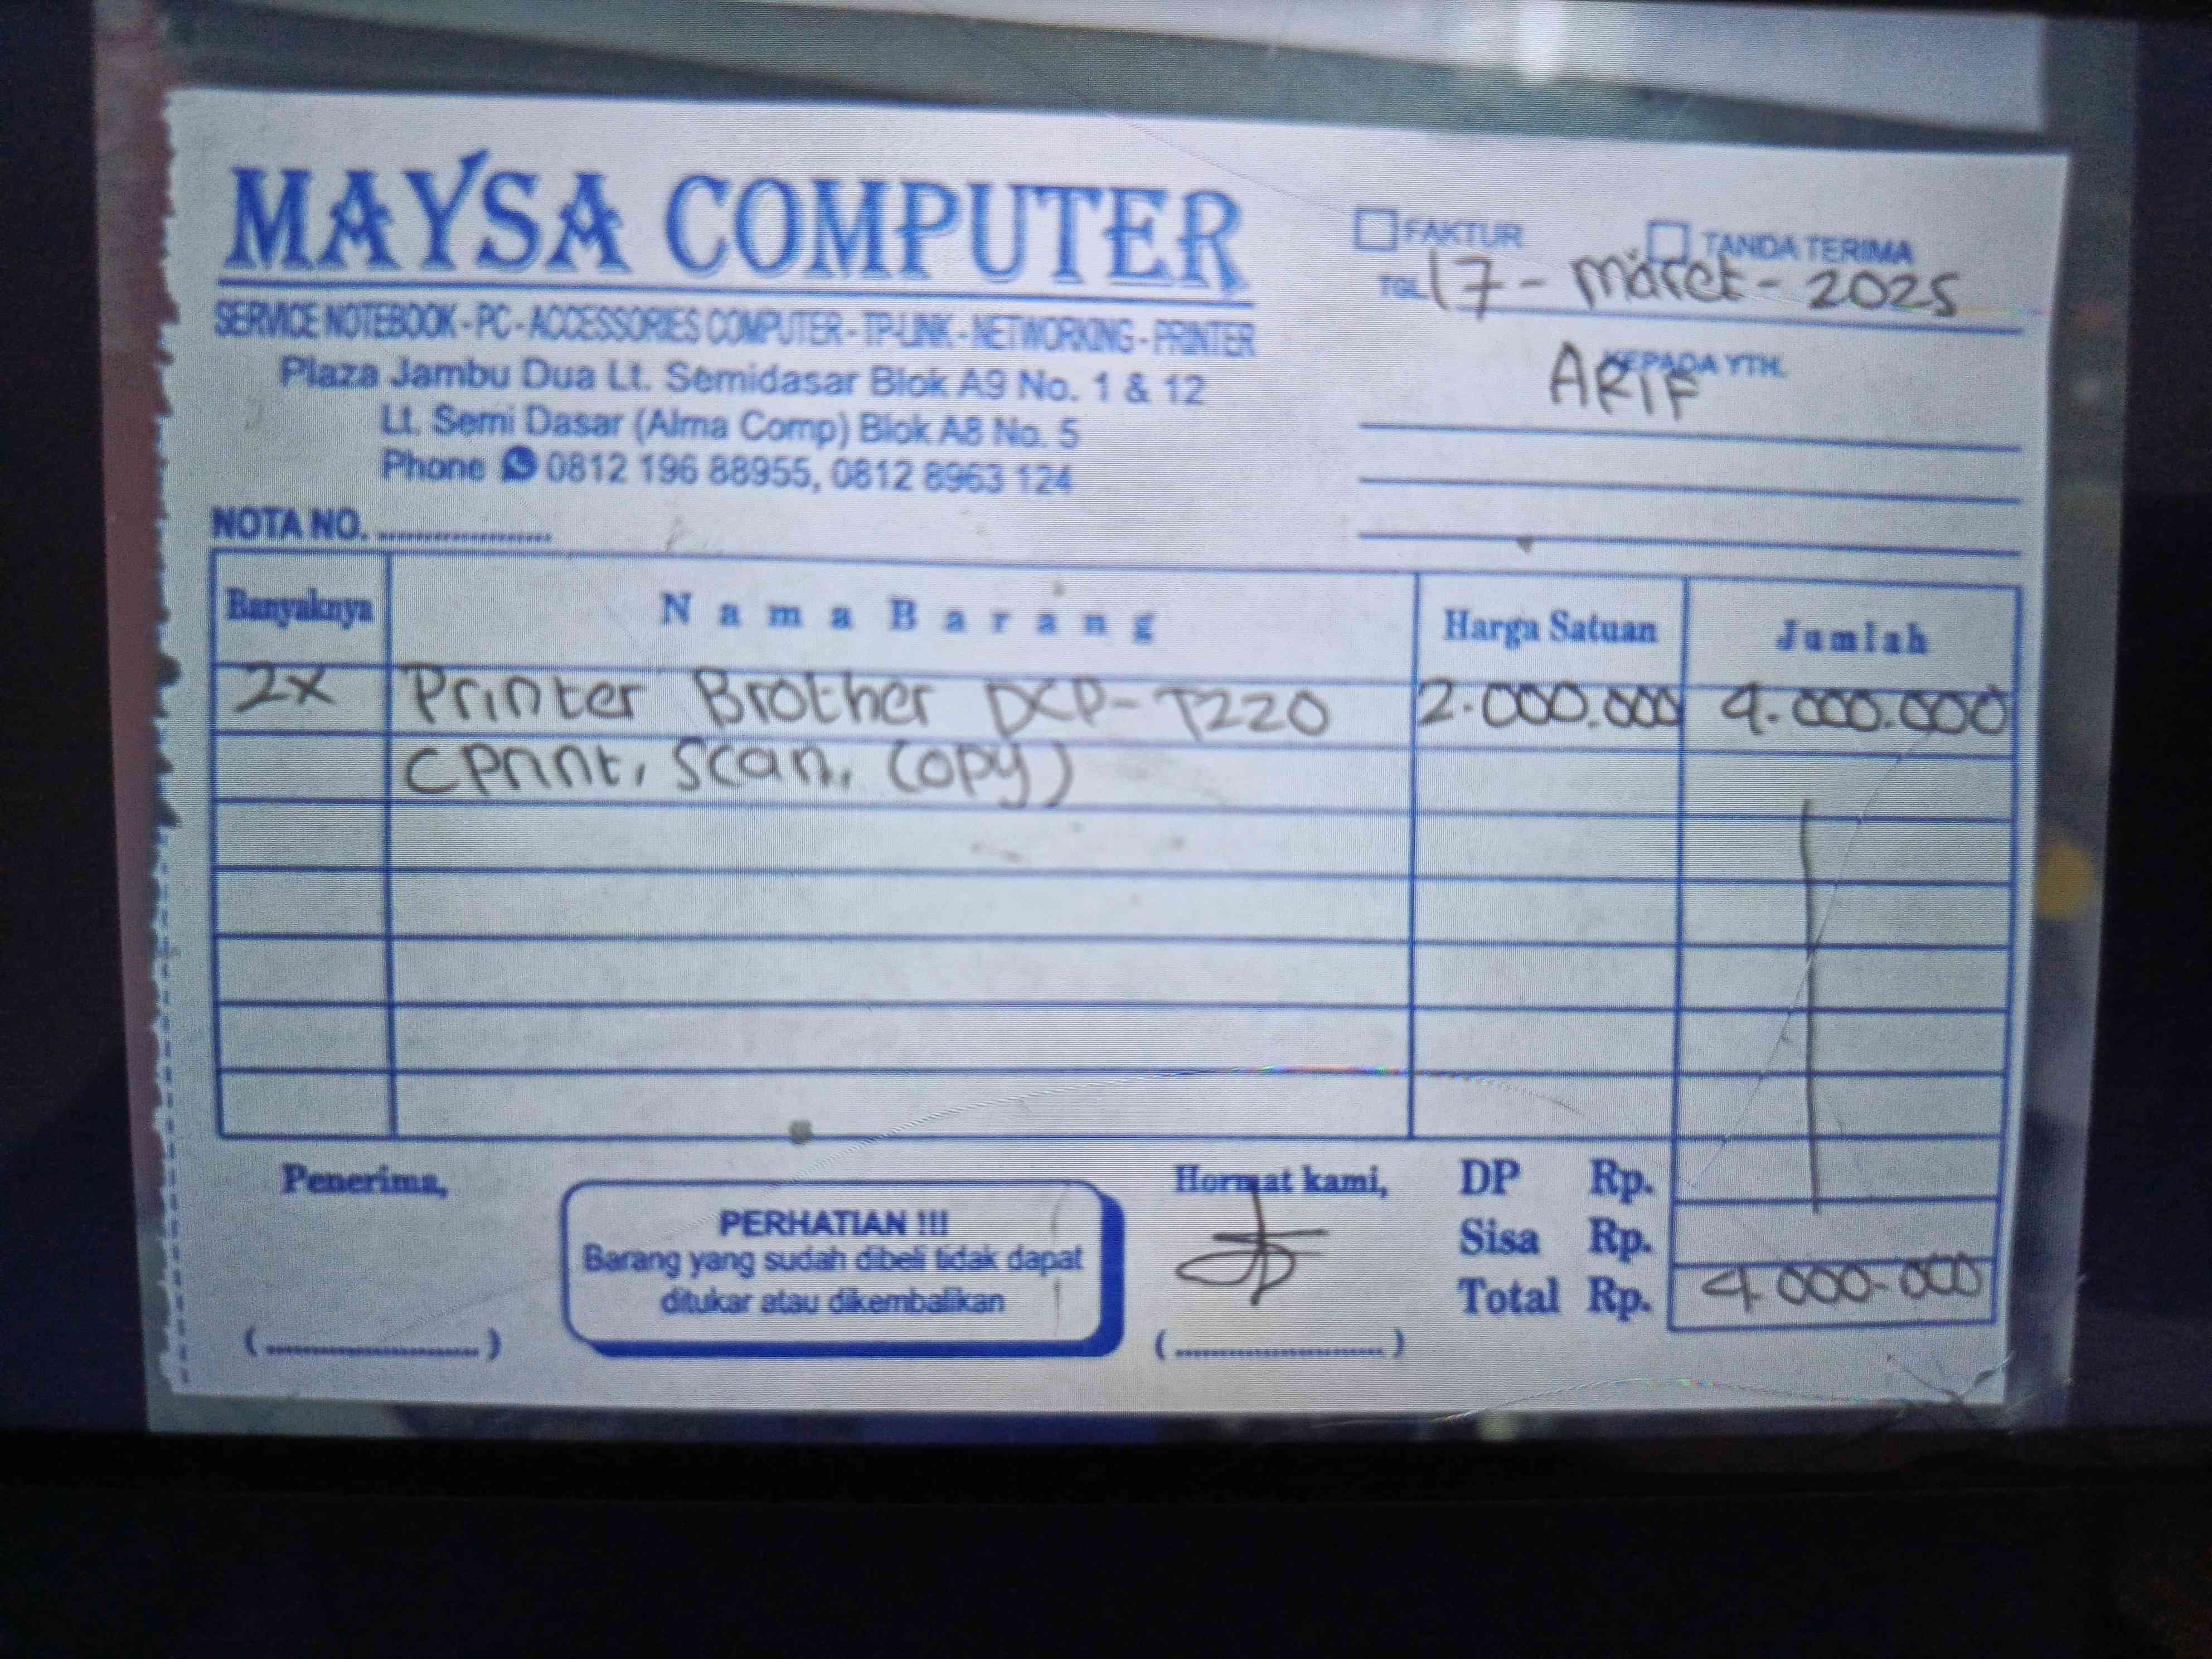 MAYSA COMPUTER
SERVICE NOTEBOOK - PC - ACCESSORIES COMPUTER - TP-LINK - NETWORKING - PRINTER
Plaza Jambu Dua Lt. Semidasar Blok A9 No. 1 & 12
Lt. Semi Dasar (Alma Comp) Blok A8 No. 5
Phone 0812 196 88955, 0812 8963 124
NOTA NO. ....................
FAKTUR TANDA TERIMA
TGL. 17 - Maret - 2025
KEPADA YTH.
ARIF
Banyaknya Nama Barang Harga Satuan Jumlah
2x Printer Brother DCP-T220 2.000.000 4.000.000
(Print, Scan, Copy)
Penerima,
(........................)
PERHATIAN !!!
Barang yang sudah dibeli tidak dapat
ditukar atau dikembalikan
Hormat kami,
(........................)
DP Rp.
Sisa Rp.
Total Rp. 4.000.000